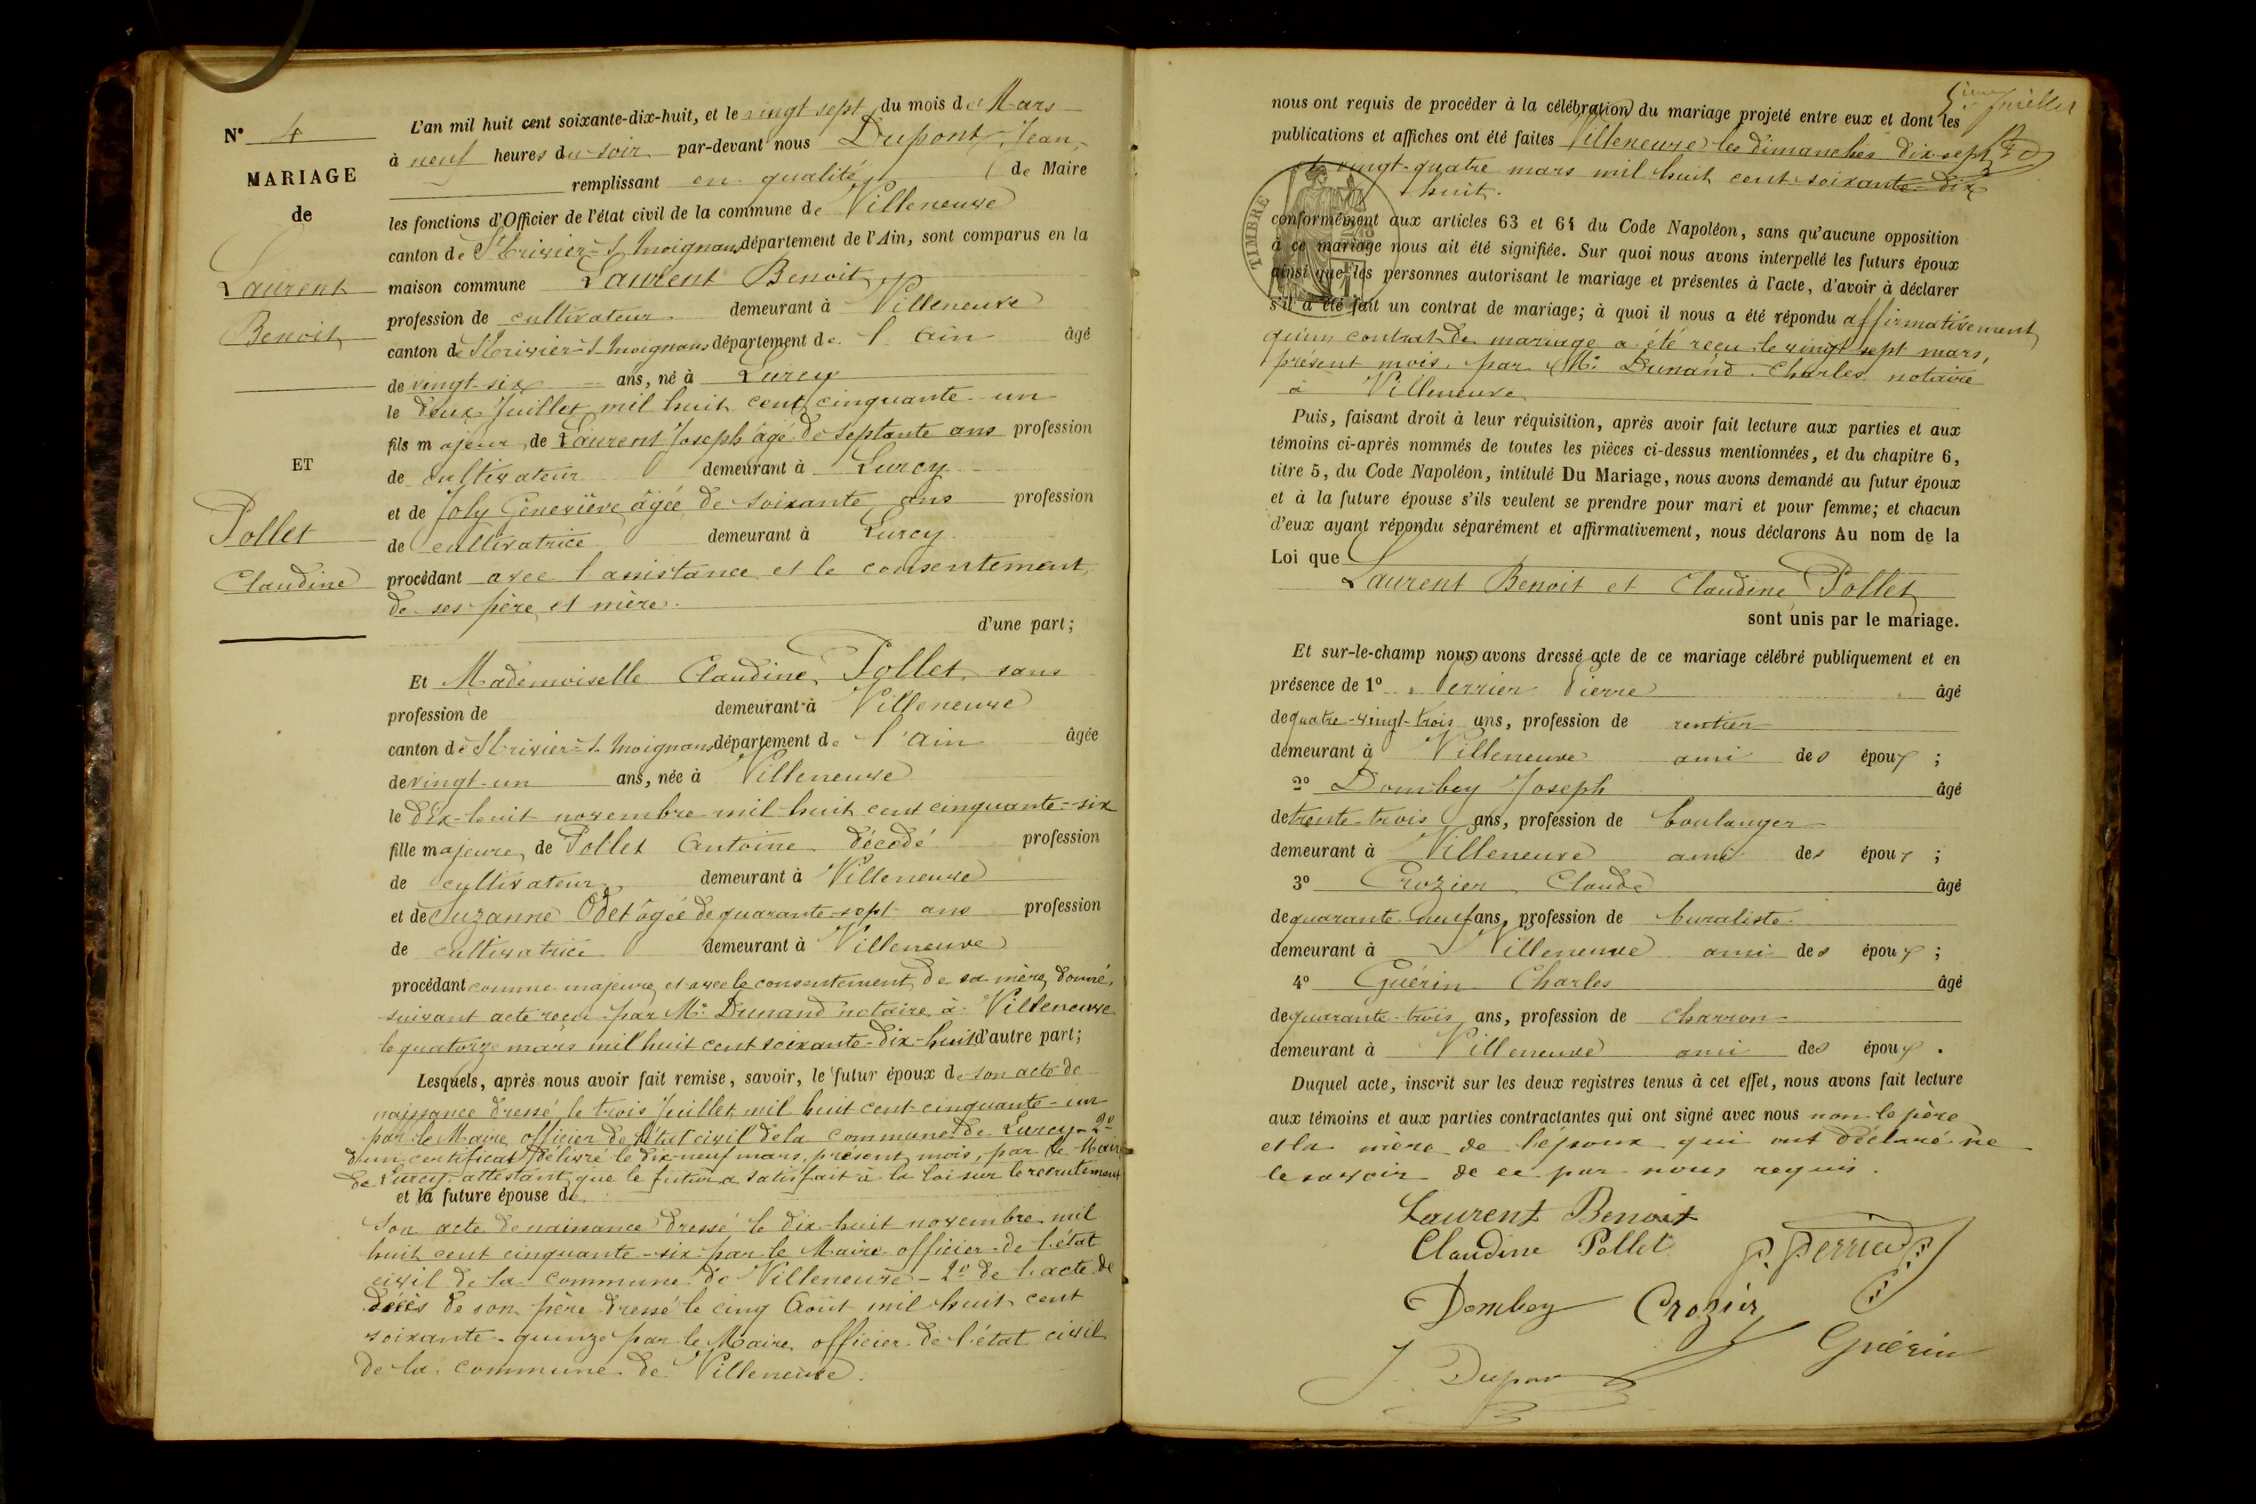 N° 4
MARIAGE
de
Laurent
Benoit
ET
Pollet
Claudine
L'an mil huit cent soixante-dix-huit, et le vingt sept du mois de Mars
à neuf heures du soir par-devant nous Dupont, Jean,
remplissant en qualité de Maire
les fonctions d'Officier de l'état civil de la commune de Villeneuve
canton de St Trivier-s-Moignans département de l'Ain, sont comparus en la
maison commune Laurent Benoit
profession de cultivateur demeurant à Villeneuve
canton de St Trivier-s-Moignans département de l'Ain âgé
de vingt-six ans, né à Lurcy
le deux Juillet mil huit cent cinquante-un
fils majeur de Laurent Joseph âgé de septante ans profession
de cultivateur demeurant à Lurcy
et de Joly Geneviève âgée de soixante ans profession
de cultivatrice demeurant à Lurcy
procédant avec l'assistance et le consentement
de ses père et mère.
d'une part;
Et Mademoiselle Claudine Pollet sans
profession de demeurant à Villeneuve
canton de St Trivier-s-Moignans département de l'Ain âgée
de vingt-un ans, née à Villeneuve
le dix-huit novembre mil huit cent cinquante-six
fille majeure de Pollet Antoine décédé profession
de cultivateur demeurant à Villeneuve
et de Suzanne Odet âgée de quarante-sept ans profession
de cultivatrice demeurant à Villeneuve
procédant comme majeure et avec le consentement de sa mère, donné,
suivant acte reçu par Me Dunand notaire à Villeneuve
le quatorze mars mil huit cent soixante-dix-huit d'autre part;
Lesquels, après nous avoir fait remise, savoir, le futur époux de son acte de
naissance dressé le trois Juillet mil huit cent cinquante-un
par le Maire officier de l'état civil de la commune de Lurcy - 2°
d'un certificat délivré le dix-neuf mars, présent mois, par le Maire
de Lurcy, attestant que le futur a satisfait à la loi sur le recrutement
et la future épouse de
son acte de naissance dressé le dix-huit novembre mil
huit cent cinquante-six par le Maire officier de l'état
civil de la commune de Villeneuve - 2° de l'acte de
décès de son père dressé le cinq Août mil huit cent
soixante-quinze par le Maire officier de l'état civil
de la commune de Villeneuve.
Juillet
nous ont requis de procéder à la célébration du mariage projeté entre eux et dont les
publications et affiches ont été faites Villeneuve les dimanches dix-sept
et vingt-quatre mars mil huit cent soixante-dix
huit.
TIMBRE
conformément aux articles 63 et 64 du Code Napoléon, sans qu'aucune opposition
à ce mariage nous ait été signifiée. Sur quoi nous avons interpellé les futurs époux
ainsi que les personnes autorisant le mariage et présentes à l'acte, d'avoir à déclarer
s'il a été fait un contrat de mariage; à quoi il nous a été répondu affirmativement
qu'un contrat de mariage a été reçu le vingt sept mars,
présent mois, par Me Dunand Charles notaire
à Villeneuve
Puis, faisant droit à leur réquisition, après avoir fait lecture aux parties et aux
témoins ci-après nommés de toutes les pièces ci-dessus mentionnées, et du chapitre 6,
titre 5, du Code Napoléon, intitulé Du Mariage, nous avons demandé au futur époux
et à la future épouse s'ils veulent se prendre pour mari et pour femme; et chacun
d'eux ayant répondu séparément et affirmativement, nous déclarons Au nom de la
Loi que
Laurent Benoit et Claudine Pollet
sont unis par le mariage.
Et sur-le-champ nous avons dressé acte de ce mariage célébré publiquement et en
présence de 1° Perrier Pierre âgé
de quatre-vingt-trois ans, profession de rentier
demeurant à Villeneuve ami des époux ;
2° Dombey Joseph âgé
de trente-trois ans, profession de boulanger
demeurant à Villeneuve ami des époux ;
3° Crozier Claude âgé
de quarante-neuf ans, profession de buraliste
demeurant à Villeneuve ami des époux ;
4° Guérin Charles âgé
de quarante-trois ans, profession de charron
demeurant à Villeneuve ami des époux .
Duquel acte, inscrit sur les deux registres tenus à cet effet, nous avons fait lecture
aux témoins et aux parties contractantes qui ont signé avec nous non le père
et la mère de l'époux qui ont déclaré ne
le savoir de ce par nous requis.
Laurent Benoit
Claudine Pollet
Dombey Crozier
Guérin
J. Dupon